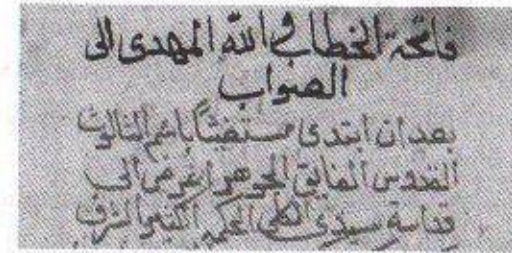 فاتحة الخطاب في الله المهدى الى
الصواب
بعد ان ابتدى مستغيثاً باسم الثالوث
القدوس الفايق الجوهر اعرض الى
قداسة سيدى الكلى الحكمه الكثير الشرف